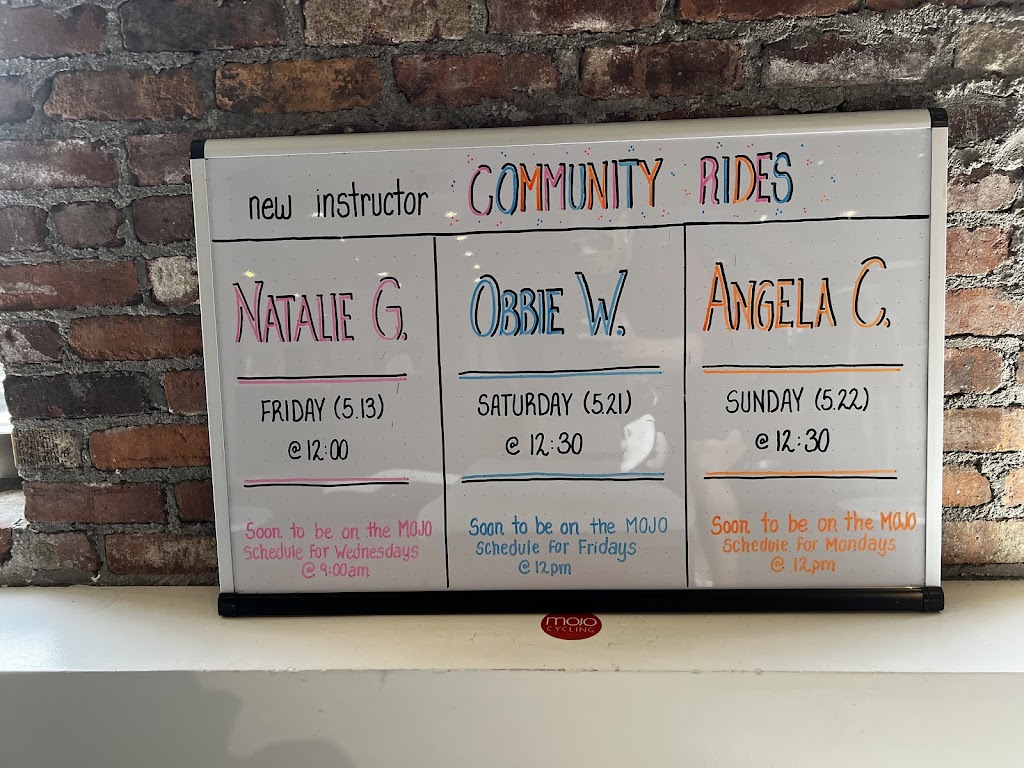 new instructor COMMUNITY RIDES
NATALIE G.
FRIDAY (5.13)
@ 12:00
Soon to be on the MOJO
Schedule for Wednesdays
@ 9:00am
OBBIE W.
SATURDAY (5.21)
@ 12:30
Soon to be on the MOJO
Schedule for Fridays
@ 12pm
ANGELA C.
SUNDAY (5.22)
@ 12:30
Soon to be on the MOJO
Schedule for Mondays
@ 12pm
MOJO
CYCLING